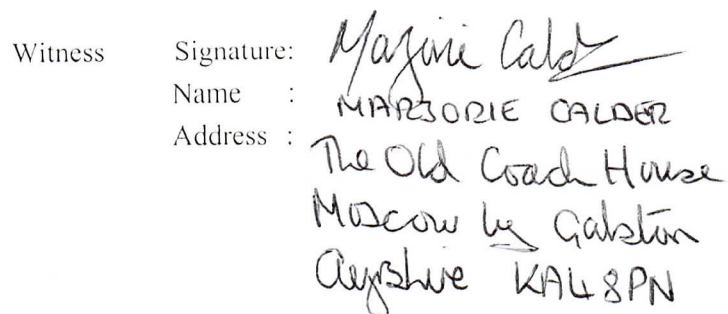 Witness Signature: Marjorie Calder
Name : MARJORIE CALDER
Address : The Old Coach House
Moscow by Galston
Ayrshire KA4 8PN